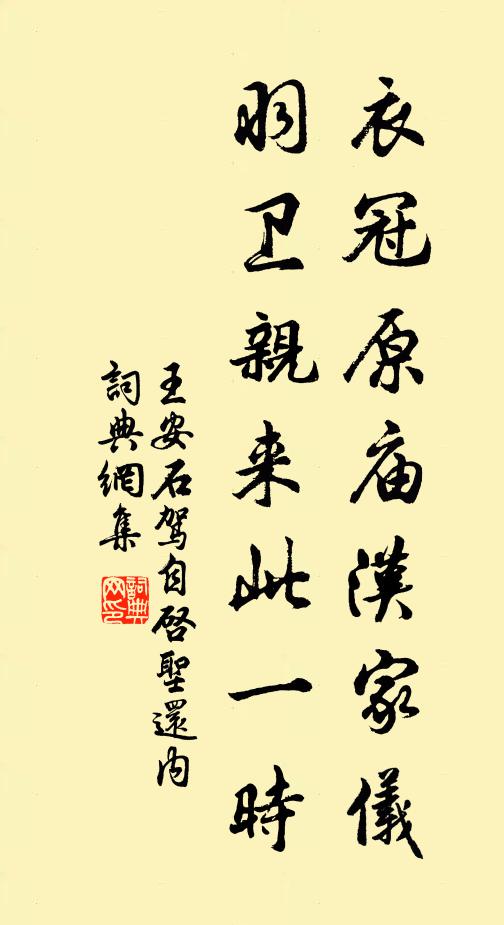 衣冠原庙漢家儀
羽卫親来此一時
王安石駕自啓聖還内
詞典網集
詞典
网印